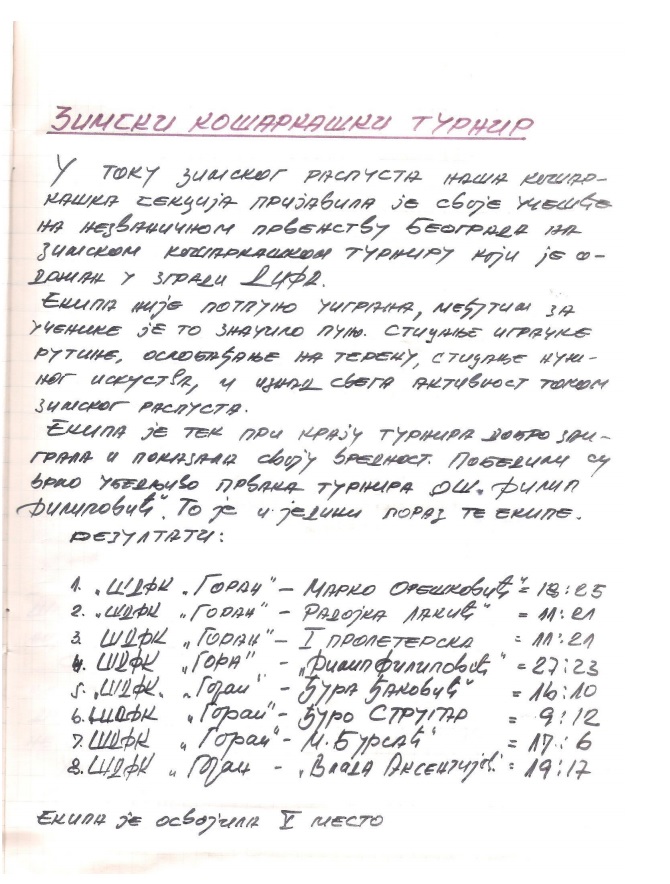 ЗИМСКИ КОШАРКАШКИ ТУРНИР
У ТОКУ ЗИМСКОГ РАСПУСТА НАША КОШАР-
КАШКА СЕКЦИЈА ПРИЈАВИЛА ЈЕ СВОЈЕ УЧЕШЋЕ
НА НЕЗВАНИЧНОМ ПРВЕНСТВУ БЕОГРАДА НА
ЗИМСКОМ КОШАРКАШКОМ ТУРНИРУ КОЈИ ЈЕ О-
ДРЖАН У ЗГРАДИ ДИФА.
ЕКИПА НИЈЕ ПОТПУНО УИГРАНА, МЕЂУТИМ ЗА
УЧЕНИКЕ ЈЕ ТО ЗНАЧИЛО ПУНО. СТИЦАЊЕ ИГРАЧКЕ
РУТИНЕ, ОСЛОБАЂАЊЕ НА ТЕРЕНУ, СТИЦАЊЕ НУЖ-
НОГ ИСКУСТВА, И ИЗНАД СВЕГА АКТИВНОСТ ТОКОМ
ЗИМСКОГ РАСПУСТА.
ЕКИПА ЈЕ ТЕК ПРИ КРАЈУ ТУРНИРА ДОБРО ЗАИ-
ГРАЛА И ПОКАЗАЛА СВОЈУ ВРЕДНОСТ. ПОБЕДИЛИ СУ
ВРЛО УБЕДЉИВО ПРВАКА ТУРНИРА ОШ. ФИЛИП
ФИЛИПОВИЋ". ТО ЈЕ И ЈЕДИНИ ПОРАЗ ТЕ ЕКИПЕ.
РЕЗУЛТАТИ:
1. „ШДФК „ГОРАН" – МАРКО ОРЕШКОВИЋ" = 18:25
2. „ШДФК „ГОРАН" – РАДОЈКА ЛАКИЋ" = 11:21
3. ШДФК „ГОРАН" – I ПРОЛЕТЕРСКА = 11:21
4. ШДФК „ГОРА" – „ФИЛИП ФИЛИПОВИЋ" = 27:23
5. „ШДФК. „Горан" – ЂУРА ЂАКОВИЋ" = 16:10
6. ШДФК „Горан" – ЂУРО СТРУГАР = 9:12
7. ШДФК „Горан" – М. БУРСАЋ" = 17:6
8. ШДФК „Горан – „ВЛАДА АКСЕНТИЈЕВ." = 19:17
ЕКИПА ЈЕ ОСВОЈИЛА V МЕСТО